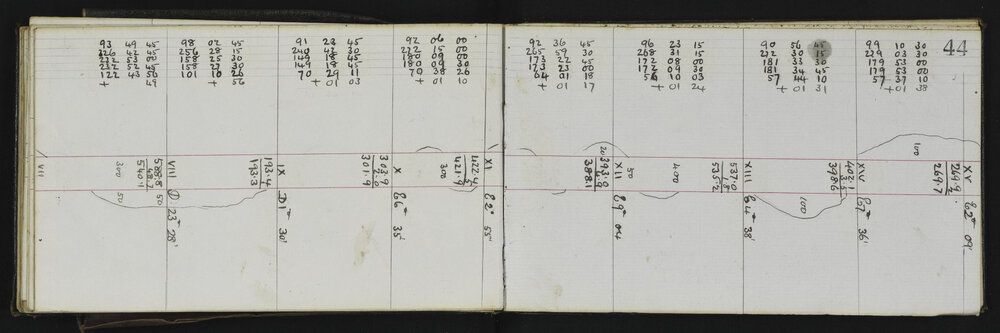 93 49 45
326 42 45
232 53 45
232 52 30
122 43 56
+ 59
98 02 45
256 28 15
158 25 30
158 27 30
101 10 26
+ 56
91 23 45
240 43 30
149 19 45
149 18 45
70 29 11
+ 01 03
92 06 00
272 15 00
180 09 00
180 09 30
70 38 26
+ 01 10
92 36 45
265 59 30
173 22 45
173 23 00
64 01 18
+ 01 17
96 23 15
268 31 15
172 08 00
172 09 30
56 10 03
+ 01 24
90 56 45
272 30 15
181 33 30
181 34 45
57 14 10
+ 01 31
99 10 30
279 03 30
179 53 00
179 53 00
57 37 10
+ 01 38
44
VII
300
588.8
48.7
540.1
50
VIII
D 23° 28'
193.4
.1
193.3
IX
D1° 30'
303.9
2.0
301.9
X
E6° 35'
300
422.4
.5
421.9
XI
E2° 55'
20
393.0
4.9
388.1
50
XII
E9° 04'
400
537.0
1.8
535.2
XIII
E4° 38'
100
402.1
3.5
398.6
XIV
E7° 36'
100
269.9
.2
269.7
XV
E2° 09'